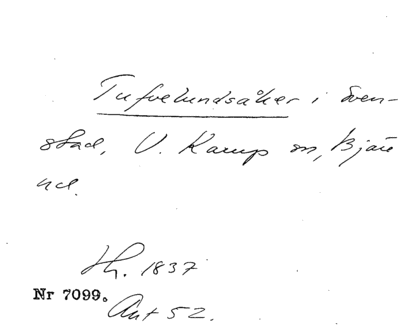 Tufvelundsåker i Sven-
stad, V. Karup sn, Bjäre
hd.
Hh. 1837
Nr 7099.
Akt 52.